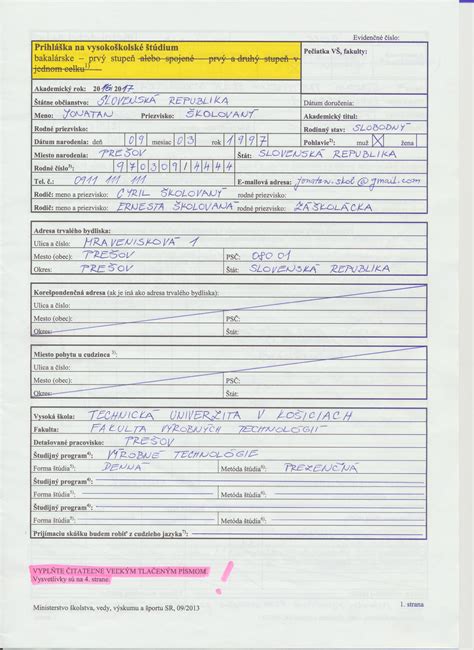 Evidenčné číslo:
Prihláška na vysokoškolské štúdium
bakalárske – prvý stupeň alebo spojené – prvý a druhý stupeň v
jednom celku1)
Pečiatka VŠ, fakulty:
Akademický rok: 2016/2017
Štátne občianstvo: SLOVENSKÁ REPUBLIKA Dátum doručenia:
Meno: JONATAN Priezvisko: ŠKOLOVANÝ Akademický titul:
Rodné priezvisko: Rodinný stav: SLOBODNÝ
Dátum narodenia: deň 09 mesiac 03 rok 1997 Pohlavie2): muž X žena
Miesto narodenia: PREŠOV Štát: SLOVENSKÁ REPUBLIKA
Rodné číslo3): 970309/4444
Tel. č.: 0911 111 111 E-mailová adresa: jonatan.skol@gmail.com
Rodič: meno a priezvisko: CYRIL ŠKOLOVANÝ rodné priezvisko:
Rodič: meno a priezvisko: ERNESTA ŠKOLOVANÁ rodné priezvisko: ZÁŠKOLÁCKA
Adresa trvalého bydliska:
Ulica a číslo: MRAVENISKOVÁ 1
Mesto (obec): PREŠOV PSČ: 080 01
Okres: PREŠOV Štát: SLOVENSKÁ REPUBLIKA
Korešpondenčná adresa (ak je iná ako adresa trvalého bydliska):
Ulica a číslo:
Mesto (obec): PSČ:
Okres: Štát:
Miesto pobytu u cudzinca
Ulica a číslo:
Mesto (obec): PSČ:
Okres: Štát:
Vysoká škola: TECHNICKÁ UNIVERZITA V KOŠICIACH
Fakulta: FAKULTA VÝROBNÝCH TECHNOLÓGIÍ
Detašované pracovisko: PREŠOV
Študijný program4): VÝROBNÉ TECHNOLÓGIE
Forma štúdia5): DENNÁ Metóda štúdia6): PREZENČNÁ
Študijný program4):
Forma štúdia5): Metóda štúdia6):
Študijný program4):
Forma štúdia5): Metóda štúdia6):
Prijímaciu skúšku budem robiť z cudzieho jazyka7):
VYPLŇTE ČITATEĽNE VEĽKÝM TLAČENÝM PÍSMOM.
Vysvetlivky sú na 4. strane.
!
1. strana
Ministerstvo školstva, vedy, výskumu a športu SR, 09/2013